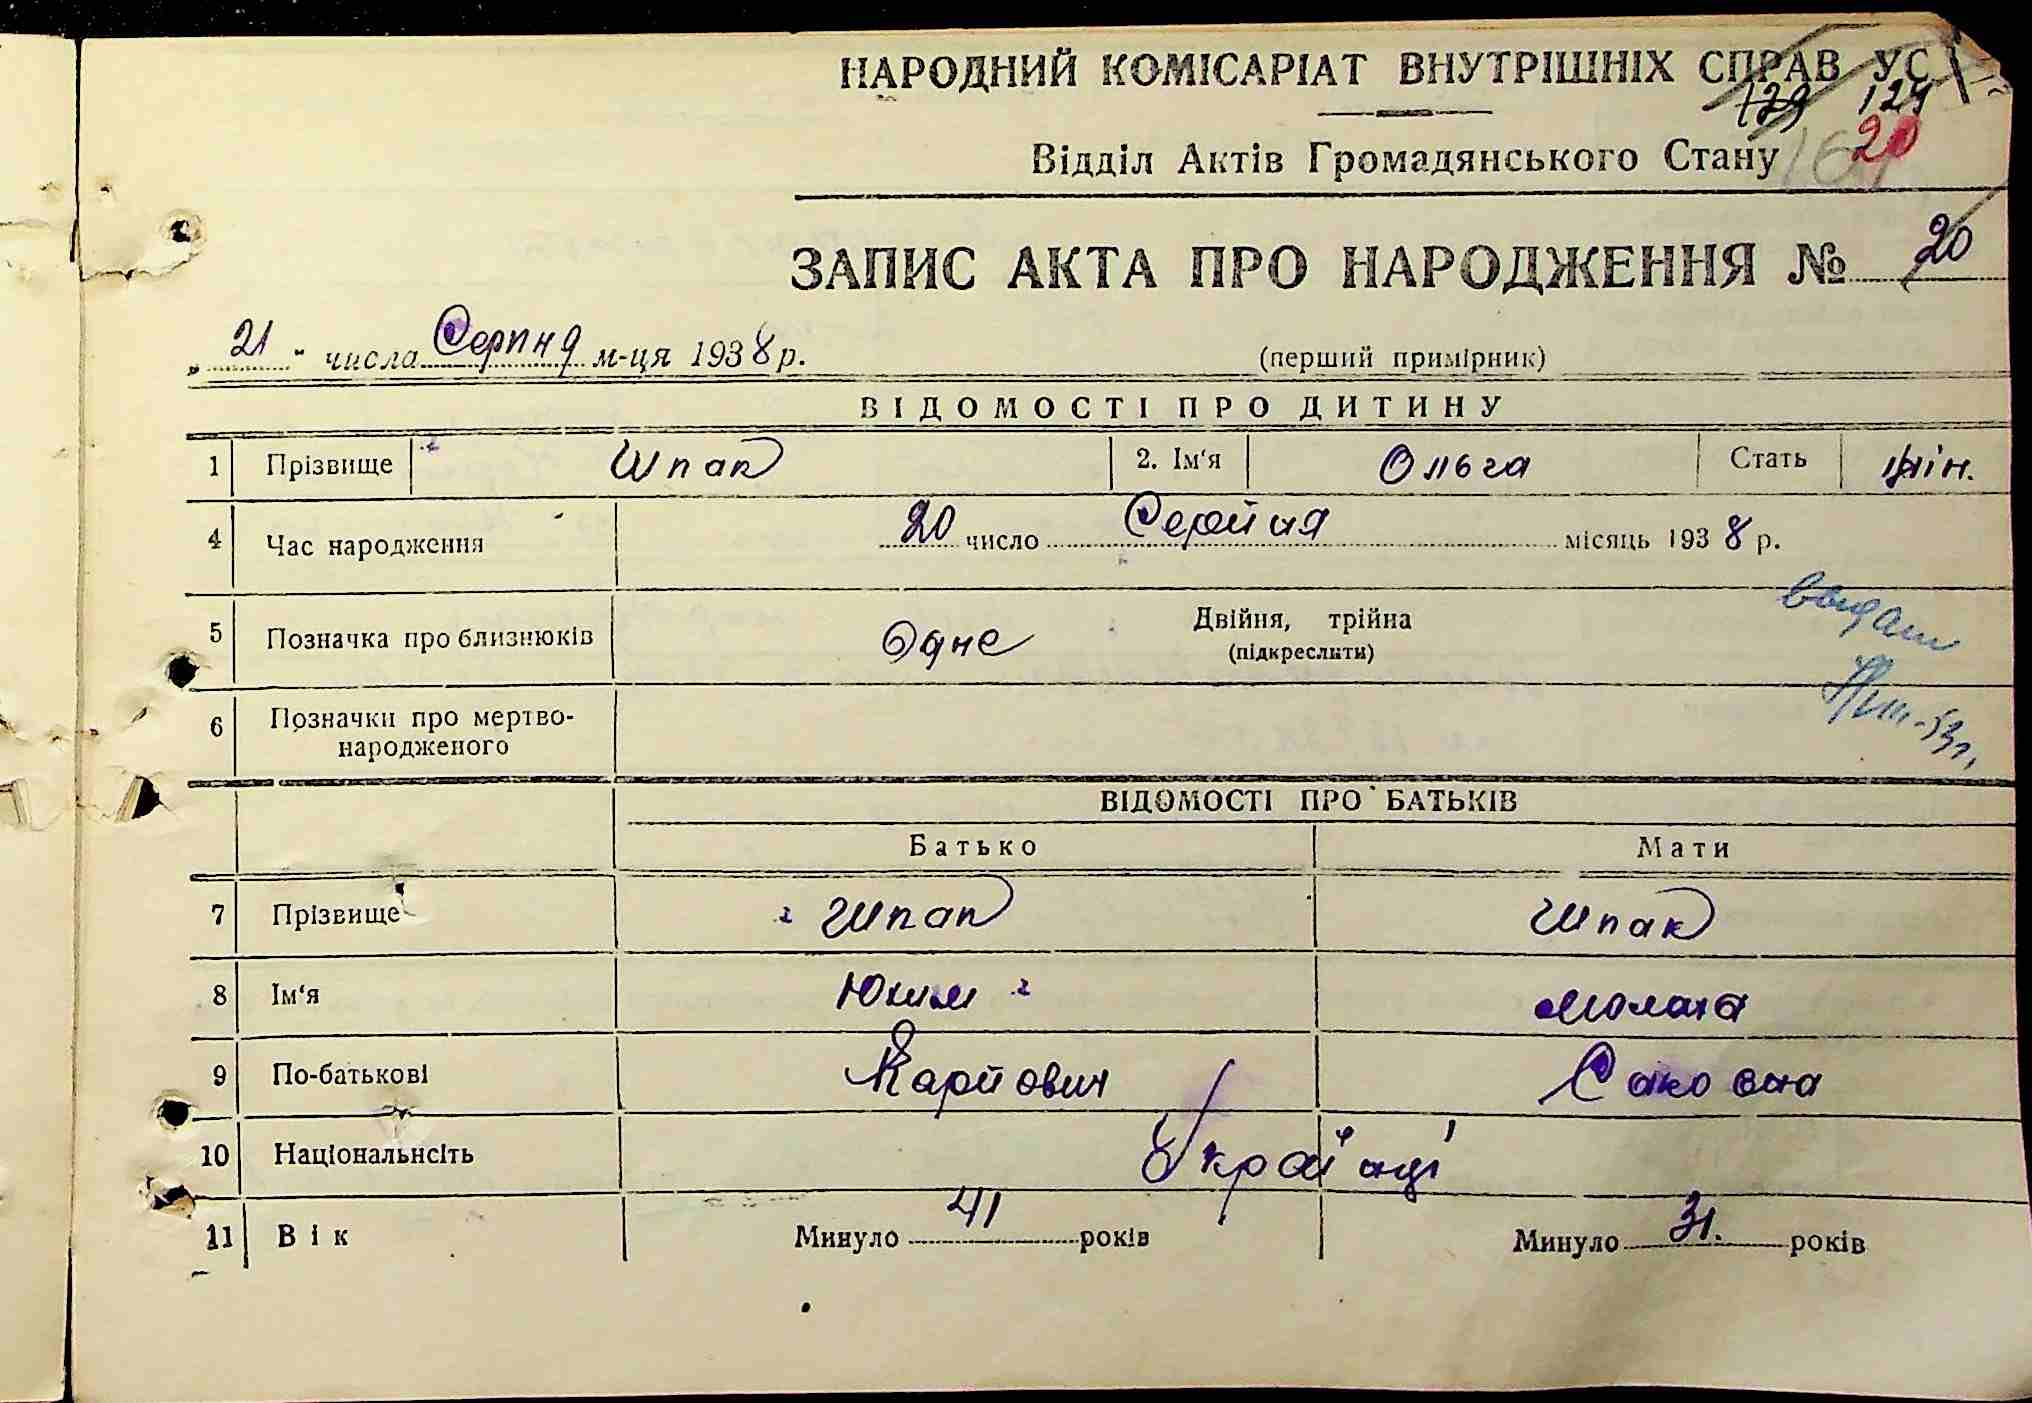 НАРОДНИЙ КОМІСАРІАТ ВНУТРІШНІХ СПРАВ УС
129 124
Відділ Актів Громадянського Стану 20
ЗАПИС АКТА ПРО НАРОДЖЕННЯ № 20
„ 21 " числа Серпня м-ця 1938 р. (перший примірник)
ВІДОМОСТІ ПРО ДИТИНУ
1 Прізвище Шпак 2. Ім'я Ольга Стать жін.
4 Час народження 20 число Серпня місяць 1938 р.
5 Позначка про близнюків Одне Двійня, трійна
(підкреслити)
6 Позначки про мертво-
народженого
ВІДОМОСТІ ПРО БАТЬКІВ
Батько Мати
7 Прізвище Шпак Шпак
8 Ім'я Юхим
9 По-батькові Карпович Саковна
10 Національнсіть Українці
11 Вік Минуло 41 років Минуло 31. років